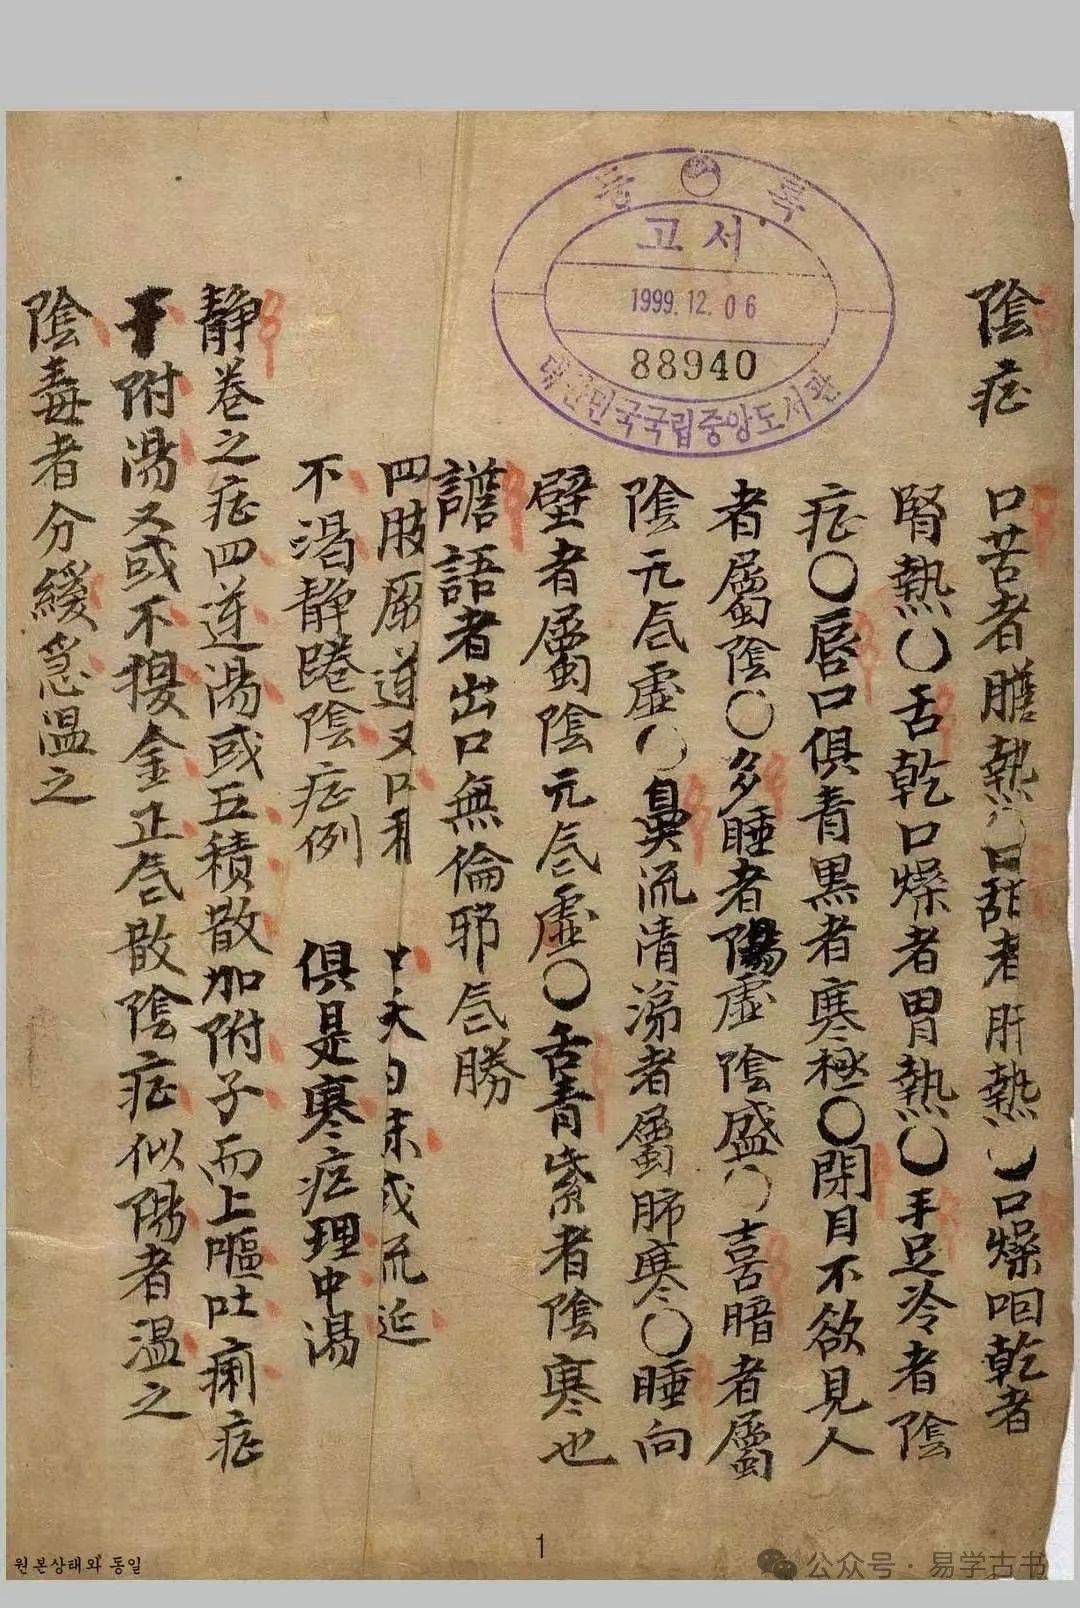 陰症
口苦者膽熱〇口甜者肝熱〇口燥咽乾者
腎熱〇舌乾口燥者胃熱〇手足冷者陰
症〇唇口俱青黑者寒極〇閉目不欲見人
者屬陰〇多睡者陽虛陰盛〇喜暗者屬
陰元気虛〇鼻流清涕者屬肺寒〇睡向
壁者屬陰元気虛〇舌青紫者陰寒也
譫語者出口無倫邪気勝
四肢厥逆又口和
不渴静踡陰症例
俱是寒症理中湯
静卷之症四逆湯或五積散加附子而上嘔吐痢症
干附湯又或不換金正気散陰症似陽者溫之
陰毒者分緩急溫之
등록
고서
1999.12.06
88940
대한민국국립중앙도서관
1
원본상태와 동일
公众号·易学古书